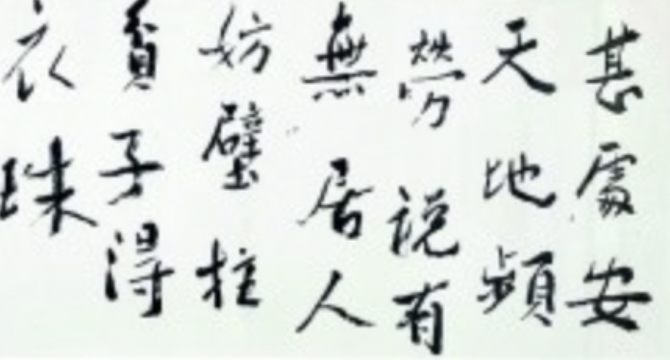 甚處安
天地頻
勞說有
無居人
妨壁拄
貧子得
衣珠